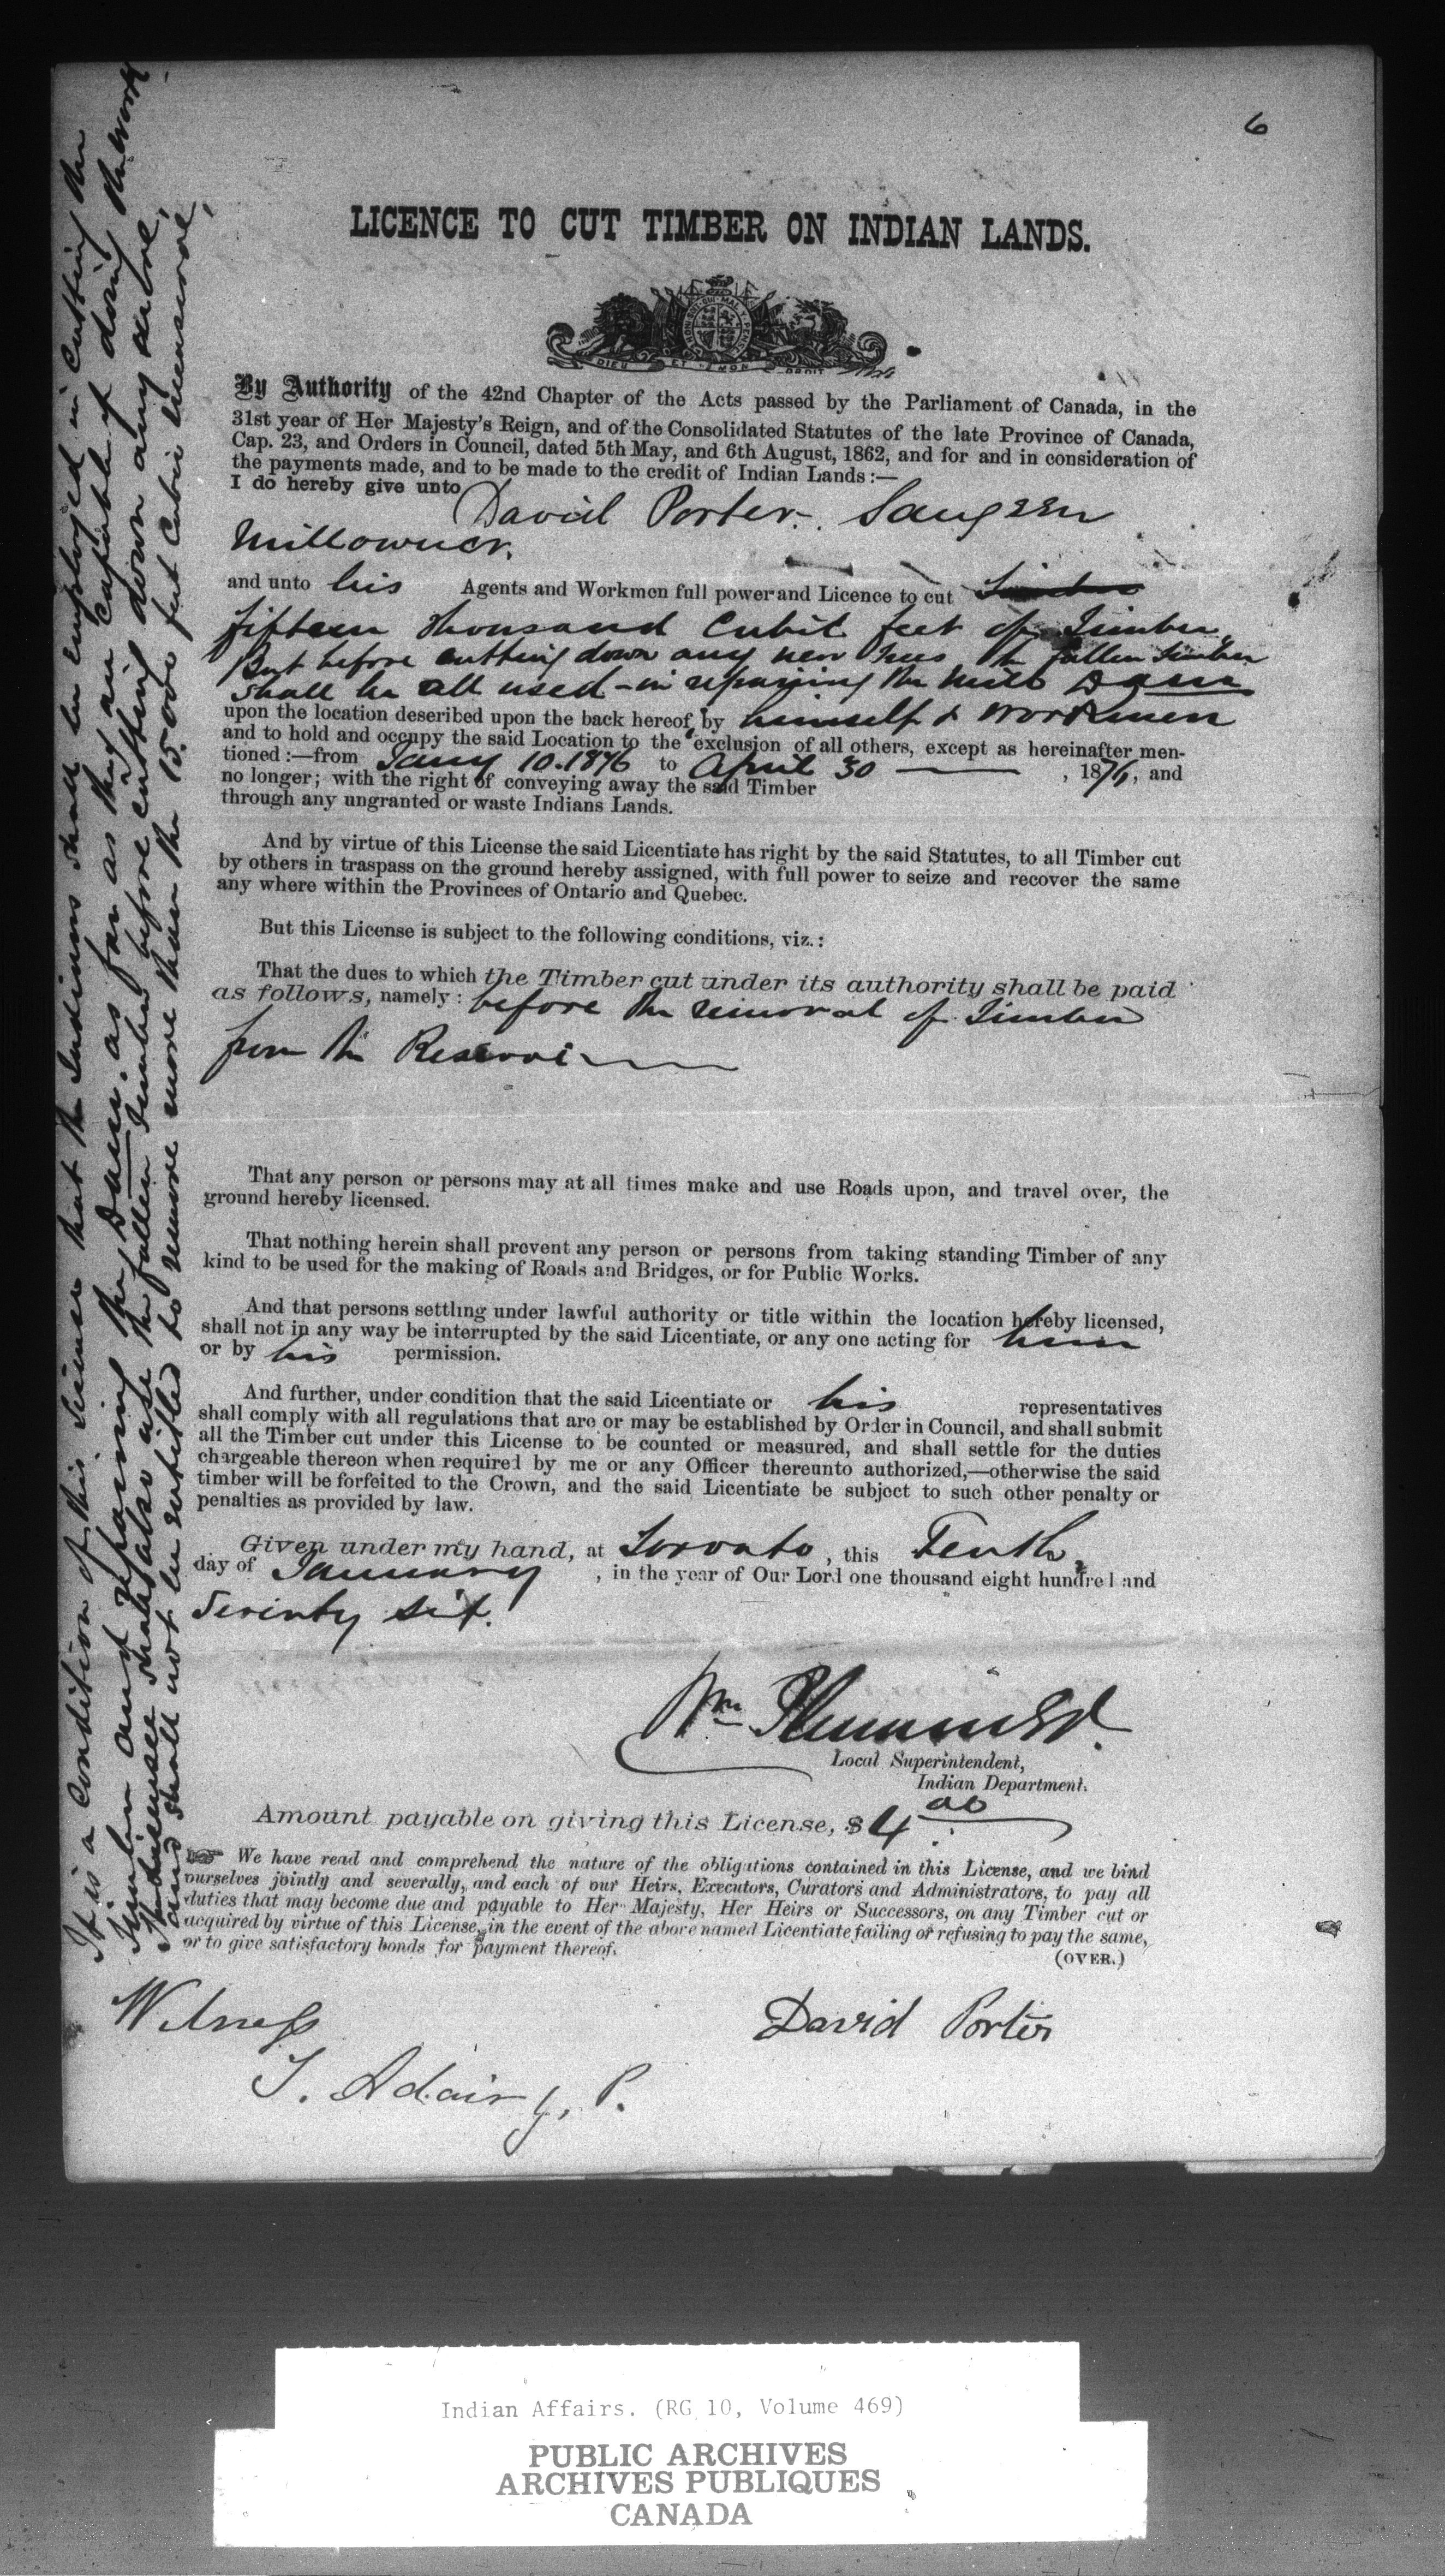 6
LICENCE TO CUT TIMBER ON INDIAN LANDS.
HONI SOIT QUI MAL Y PENSE
DIEU ET MON DROIT
By Authority of the 42nd Chapter of the Acts passed by the Parliament of Canada, in the
31st year of Her Majesty's Reign, and of the Consolidated Statutes of the late Province of Canada,
Cap. 23, and Orders in Council, dated 5th May, and 6th August, 1862, and for and in consideration of
the payments made, and to be made to the credit of Indian Lands:—
I do hereby give unto David Porter, Saugeen
Millowner.
and unto his Agents and Workmen full power and Licence to cut Timber
fifteen thousand Cubit feet of Timber,
But before cutting down any new trees, the fallen timber
shall be all used in repairing the Mill Dam
upon the location deseribed upon the back hereof by himself & Workmen
and to hold and occupy the said Location to the exclusion of all others, except as hereinafter men-
tioned:—from Jany 10. 1876 to April 30 , 1876, and
no longer; with the right of conveying away the said Timber
through any ungranted or waste Indians Lands.
And by virtue of this License the said Licentiate has right by the said Statutes, to all Timber cut
by others in traspass on the ground hereby assigned, with full power to seize and recover the same
any where within the Provinces of Ontario and Quebec.
But this License is subject to the following conditions, viz.:
That the dues to which the Timber cut under its authority shall be paid
as follows, namely: before the removal of Timber
from the Reserve
That any person or persons may at all times make and use Roads upon, and travel over, the
ground hereby licensed.
That nothing herein shall prevent any person or persons from taking standing Timber of any
kind to be used for the making of Roads and Bridges, or for Public Works.
And that persons settling under lawful authority or title within the location hereby licensed,
shall not in any way be interrupted by the said Licentiate, or any one acting for him
or by his permission.
And further, under condition that the said Licentiate or his representatives
shall comply with all regulations that are or may be established by Order in Council, and shall submit
all the Timber cut under this License to be counted or measured, and shall settle for the duties
chargeable thereon when required by me or any Officer thereunto authorized,—otherwise the said
timber will be forfeited to the Crown, and the said Licentiate be subject to such other penalty or
penalties as provided by law.
Given under my hand, at Toronto, this Tenth
day of January, in the year of Our Lord one thousand eight hundred and
Seventy six.
Wm Plummer
Local Superintendent,
Indian Department.
Amount payable on giving this License, $4 00
We have read and comprehend the nature of the obligations contained in this License, and we bind
ourselves jointly and severally, and each of our Heirs, Executors, Curators and Administrators, to pay all
duties that may become due and payable to Her Majesty, Her Heirs or Successors, on any Timber cut or
acquired by virtue of this License, in the event of the above named Licentiate failing or refusing to pay the same,
or to give satisfactory bonds for payment thereof.
(OVER.)
Witness
T. Adair J. P.
David Porter
It is a condition of this license that the Indians shall be employed in cutting the
Timber and repairing the Dam, as far as they are capable of doing the work
The licensee shall also use the fallen timber before cutting down any new
and shall not be entitled to remove more than the 15.000 feet Cubic measure,
Indian Affairs. (RG 10, Volume 469)
PUBLIC ARCHIVES
ARCHIVES PUBLIQUES
CANADA